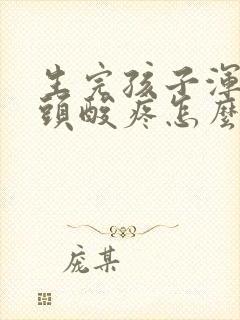 生完孩子渾
頭酸疼怎麼
庞某